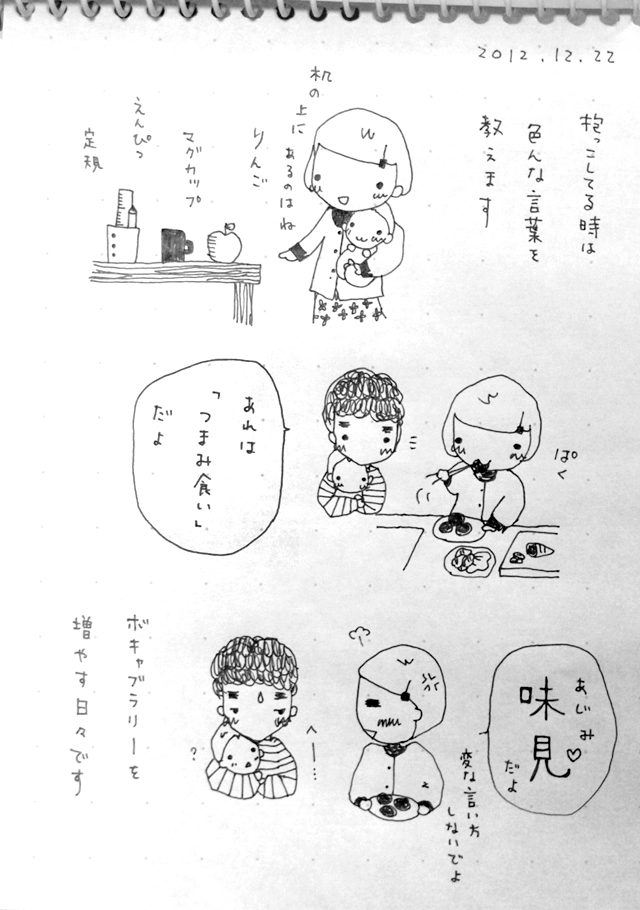 2012.12.22
抱っこしてる時は
色んな言葉を
教えます
机の上に
あるのはね
りんご
マグカップ
えんぴつ
定規
ぱく
あれは
「つまみ食い」
だよ
あじみ
味見♡
だよ
変な言い方
しないでよ
へー…
?
ボキャブラリーを
増やす日々です